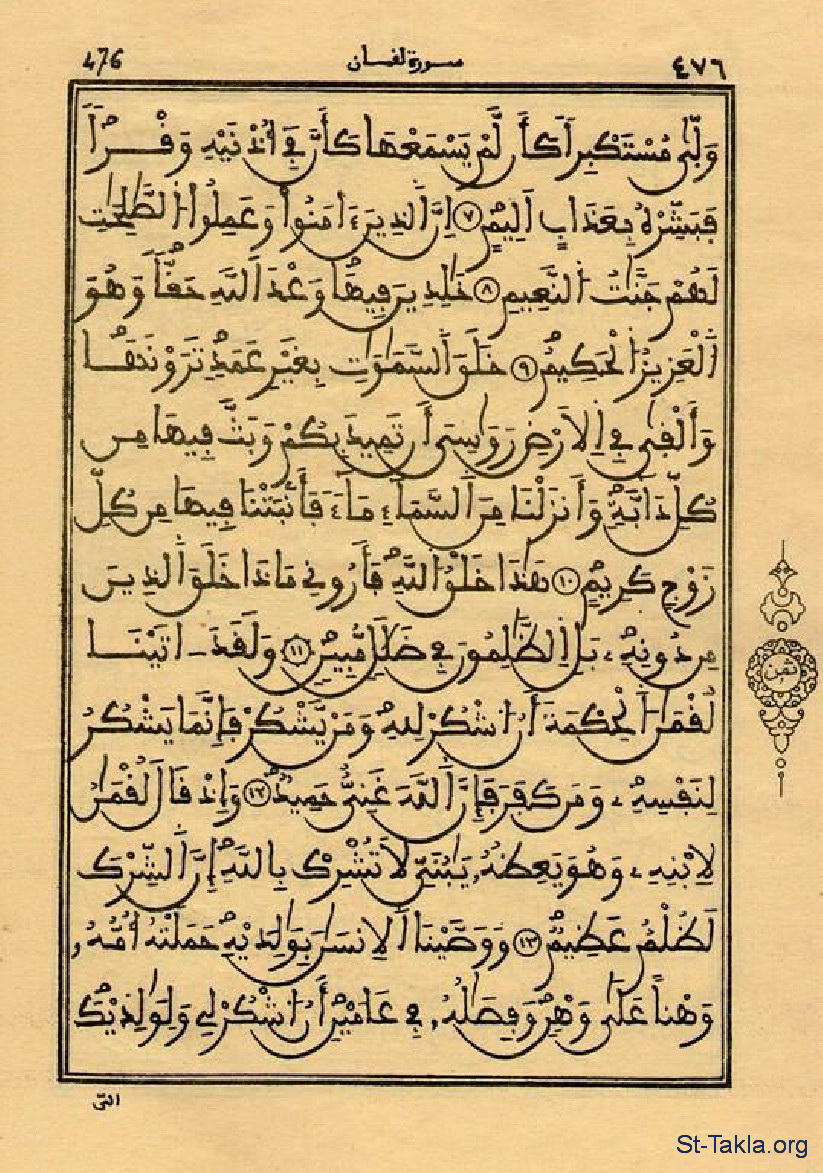 476 سورة لقمان ٤٧٦
وَلّٰى مُسْتَكْبِراً كَأَن لَّمْ يَسْمَعْهَا كَأَنَّ فِے أُذْنَيْهِ وَقْراً
فَبَشِّرْهُ بِعَذَابٍ اَلِيمٍ ٧ اِنَّ اَلذِينَ ءَامَنُواْ وَعَمِلُواْ اُلصَّٰلِحَٰتِ
لَهُمْ جَنَّٰتُ اُلنَّعِيمِ ٨ خَٰلِدِينَ فِيهَا وَعْدَ اَللَّهِ حَقّاً وَهُوَ
اَلْعَزِيزُ اُلْحَكِيمُ ٩ خَلَقَ اَلسَّمَٰوَٰتِ بِغَيْرِ عَمَدٍ تَرَوْنَهَا
وَأَلْقٰى فِے اِلَارْضِ رَوَٰسِىَ أَن تَمِيدَ بِكُمْ وَبَثَّ فِيهَا مِن
كُلِّ دَآبَّةٍ وَأَنزَلْنَا مِنَ اَلسَّمَآءِ مَآءً فَأَنۢبَتْنَا فِيهَا مِن كُلِّ
زَوْجٍ كَرِيمٍ ١٠ هَٰذَا خَلْقُ اُللَّهِ فَأَرُونِے مَاذَا خَلَقَ اَلذِينَ
مِن دُونِهِۦ بَلِ اِلظَّٰلِمُونَ فِے ضَلَٰلٍ مُّبِينٍ ١١ وَلَقَدَ ـ اتَيْنَا
لُقْمَٰنَ اَلْحِكْمَةَ أَنُ اُشْكُرْ لِلهِ وَمَنْ يَّشْكُرْ فَإِنَّمَا يَشْكُرُ
لِنَفْسِهِۦ وَمَن كَفَرَ فَإِنَّ اَللَّهَ غَنِىٌّ حَمِيدٌ ١٢ وَإِذْ قَالَ لُقْمَٰنُ
لِابْنِهِۦ وَهُوَ يَعِظُهُۥ يَٰبُنَىِّ لَا تُشْرِكْ بِاللَّهِ إِنَّ اَلشِّرْكَ
لَظُلْمٌ عَظِيمٌ ١٣ وَوَصَّيْنَا اَلِانسَٰنَ بِوَٰلِدَيْهِ حَمَلَتْهُ أُمُّهُۥ
وَهْناً عَلَىٰ وَهْنٍ وَفِصَٰلُهُۥ فِے عَامَيْنِ أَنُ اُشْكُرْ لِے وَلِوَٰلِدَيْكَ
ثمن
St-Takla.org